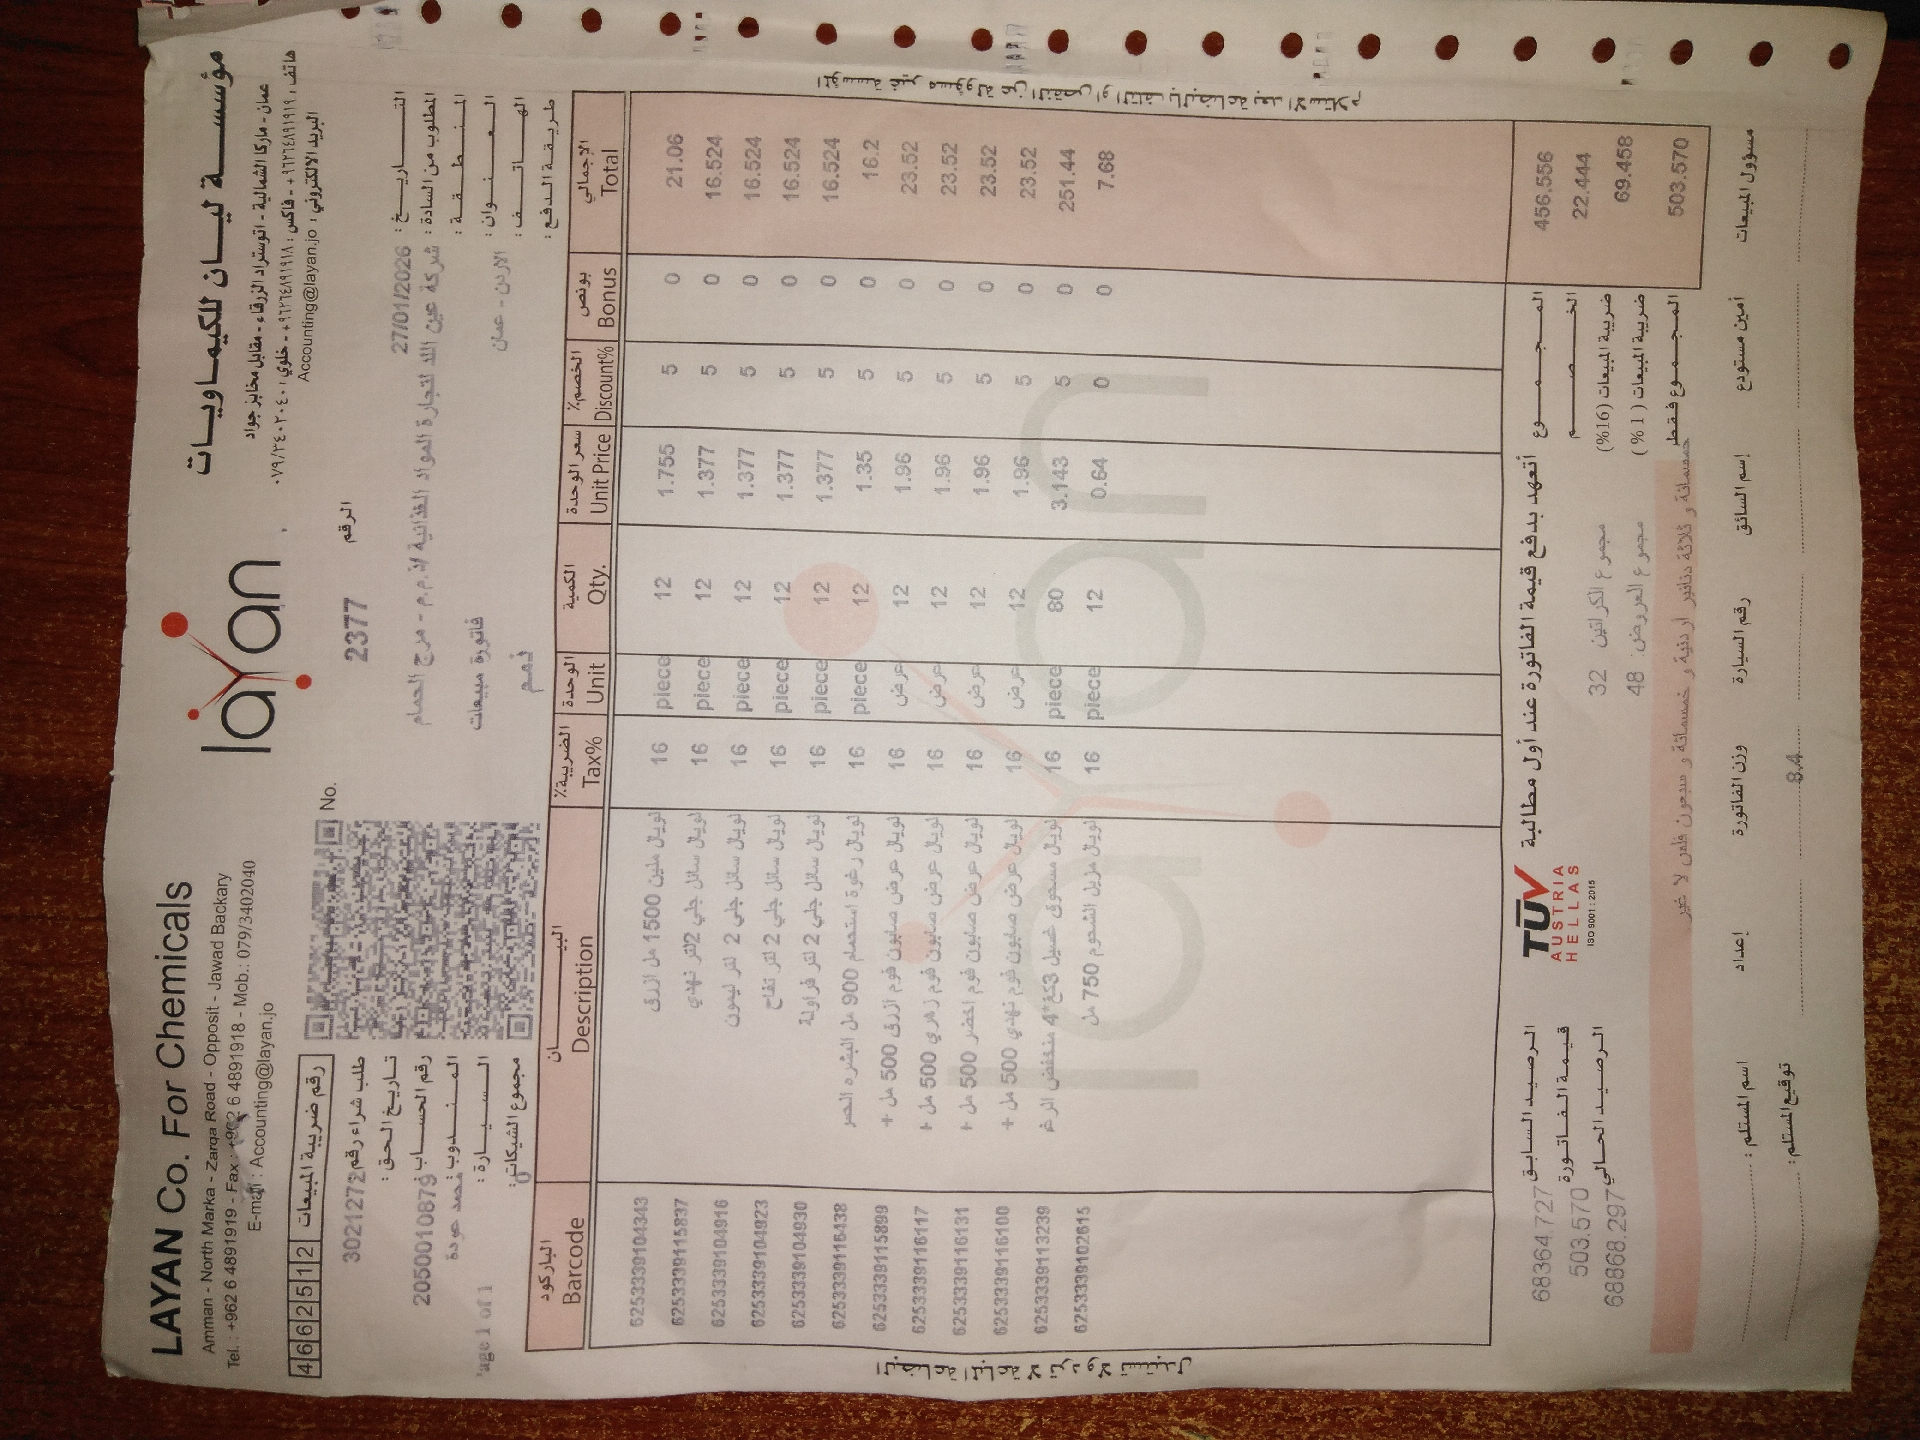 LAYAN Co. For Chemicals
Amman - North Marka - Zarqa Road - Opposit - Jawad Backary
Tel. : +962 6 4891919 - Fax : +962 6 4891918 - Mob.: 079/3402040
E-mail : Accounting@layan.jo
layan
مؤسسة ليان للكيماويات
عمان - ماركا الشمالية - اتوستراد الزرقاء - مقابل مخابز جواد
هاتف : ٩٦٢٦٤٨٩١٩١٩+ - فاكس : ٩٦٢٦٤٨٩١٩١٨+ - خلوي : ٠٧٩/٣٤٠٢٠٤٠
البريد الالكتروني : Accounting@layan.jo
4 6 6 2 5 1 2 رقم ضريبة المبيعات
No. 2377 الرقم
طلب شراء رقم 3021272
تاريخ الحق :
رقم الحساب 2050010879
المندوب : محمد عودة
السيارة :
مجموع الشيكات: 0
age 1 of 1
التاريخ : 27/01/2026
المطلوب من السادة : شركة عين اللا لتجارة المواد الغذائية ذ.م.م - مرج الحمام
المنطقة :
العنوان : الاردن - عمان
فاتورة مبيعات
الهاتف :
طريقة الدفع :
ذمم
الباركود البيان الضريبة% الوحدة الكمية سعر الوحدة الخصم% بونص الإجمالي
Barcode Description Tax% Unit Qty. Unit Price Discount% Bonus Total
6253339104343 لويال ملين 1500 مل ازرق 16 piece 12 1.755 5 0 21.06
6253339115837 لويال سائل جلي 2لتر نهدي 16 piece 12 1.377 5 0 16.524
6253339104916 لويال سائل جلي 2 لتر ليمون 16 piece 12 1.377 5 0 16.524
6253339104923 لويال سائل جلي 2 لتر تفاح 16 piece 12 1.377 5 0 16.524
6253339104930 لويال سائل جلي 2 لتر فراولة 16 piece 12 1.377 5 0 16.524
6253339116438 لويال رغوة استحمام 900 مل البشره الحس 16 piece 12 1.35 5 0 16.2
6253339115899 لويال عرض صابون فوم ازرق 500 مل + 16 عرض 12 1.96 5 0 23.52
6253339116117 لويال عرض صابون فوم زهري 500 مل + 16 عرض 12 1.96 5 0 23.52
6253339116131 لويال عرض صابون فوم اخضر 500 مل + 16 عرض 12 1.96 5 0 23.52
6253339116100 لويال عرض صابون فوم نهدي 500 مل + 16 عرض 12 1.96 5 0 23.52
6253339113239 لويال مسحوق غسيل 3كغ*4 منخفض الرغ 16 piece 80 3.143 5 0 251.44
6253339102615 لويال مزيل الشحوم 750 مل 16 piece 12 0.64 0 0 7.68
البضاعة المباعة لا ترد ولا تستبدل
المؤسسة غير مسؤولة عن النقص او التلف بالبضاعة بعد الاستلام
الرصيد السابق 68364.727
قيمة الفاتورة 503.570
الرصيد الحالي 68868.297
TÜV
AUSTRIA
HELLAS
ISO 9001 : 2015
أتعهد بدفع قيمة الفاتورة عند أول مطالبة
مجموع الكراتين 32
مجموع العروض: 48
المجموع 456.556
الخصم 22.444
ضريبة المبيعات (16%) 69.458
ضريبة المبيعات (1%)
المجموع فقط 503.570
خمسمائة و ثلاثة دنانير اردنية و خمسمائة و سبعون فلس لا غير
اسم المستلم : إعداد وزن الفاتورة رقم السيارة إسم السائق أمين مستودع مسؤول المبيعات
توقيع المستلم : 8.4